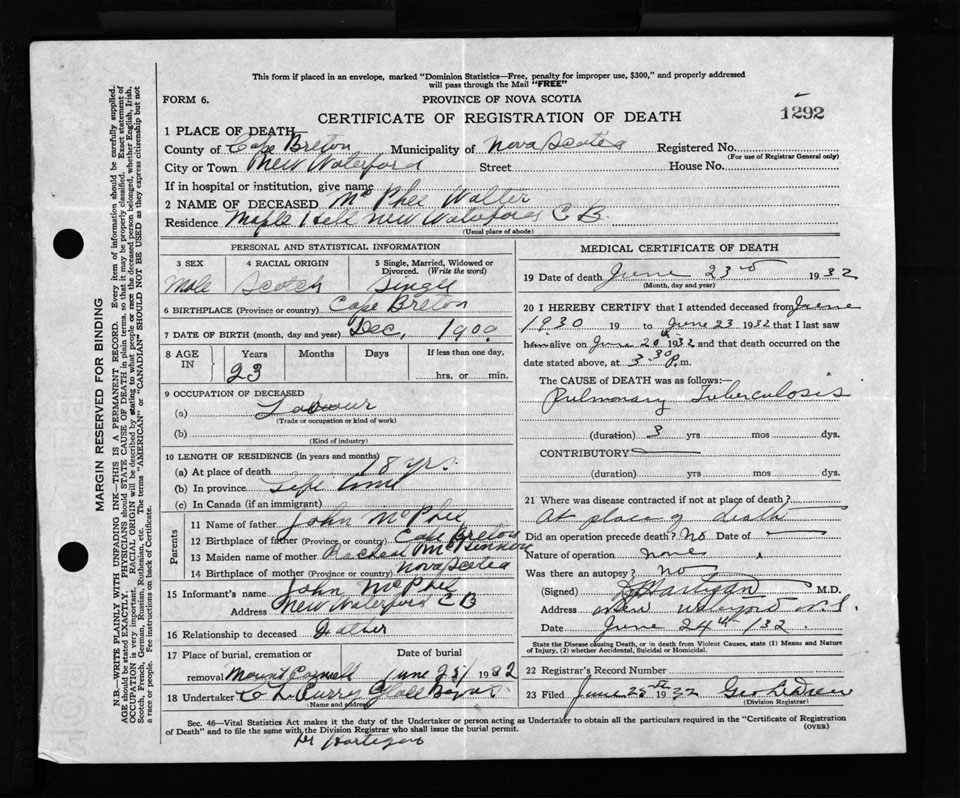 This form if placed in an envelope, marked "Dominion Statistics—Free, penalty for improper use, $300," and properly addressed
will pass through the Mail "FREE"
FORM 6.
PROVINCE OF NOVA SCOTIA
1292
CERTIFICATE OF REGISTRATION OF DEATH
1 PLACE OF DEATH
County of Cape Breton Municipality of Nova Scotia Registered No.
(For use of Registrar General only)
City or Town New Waterford Street House No.
If in hospital or institution, give name
2 NAME OF DECEASED McPhee Walter
Residence Maple Hill New Waterford C B.
(Usual place of abode)
PERSONAL AND STATISTICAL INFORMATION
3 SEX 4 RACIAL ORIGIN 5 Single, Married, Widowed or
Divorced. (Write the word)
Male Scotch Single
6 BIRTHPLACE (Province or country) Cape Breton
7 DATE OF BIRTH (month, day and year) Dec, 1909
8 AGE IN Years Months Days If less than one day.
23 hrs. or min.
9 OCCUPATION OF DECEASED
(a) Labour
(Trade or occupation or kind of work)
(b)
(Kind of industry)
10 LENGTH OF RESIDENCE (in years and months)
(a) At place of death 18 yrs.
(b) In province Life time
(c) In Canada (if an immigrant)
Parents
11 Name of father John McPhee
12 Birthplace of father (Province or country) Cape Breton
13 Maiden name of mother Racheal McKinnon
14 Birthplace of mother (Province or country) Nova Scotia
15 Informant's name John McPhee
Address New Waterford C B
16 Relationship to deceased Father
17 Place of burial, cremation or Date of burial
removal Mount Carmell June 25/ 1932
18 Undertaker C L Curry Glace Bay N.S.
(Name and address)
MEDICAL CERTIFICATE OF DEATH
19 Date of death June 23rd 1932
(Month, day and year)
20 I HEREBY CERTIFY that I attended deceased from June
1930 19 to June 23 1932 that I last saw
him alive on June 20th 1932 and that death occurred on the
date stated above, at 3 30 P. m.
The CAUSE of DEATH was as follows:
Pulmonary Tuberculosis
(duration) 3 yrs mos dys.
CONTRIBUTORY
(duration) yrs. mos. dys.
21 Where was disease contracted if not at place of death?
At place of death
Did an operation precede death? No Date of
Nature of operation none
Was there an autopsy? No
(Signed) Hartigan M.D.
Address New Waterford N.S.
Date June 24th /32
State the Disease causing Death, or in death from Violent Causes, state (1) Means and Nature
of Injury, (2) whether Accidental, Suicidal or Homicidal.
22 Registrar's Record Number
23 Filed June 25th 1932 Geo
(Division Registrar)
Sec. 46—Vital Statistics Act makes it the duty of the Undertaker or person acting as Undertaker to obtain all the particulars required in the "Certificate of Registration
of Death" and to file the same with the Division Registrar who shall issue the burial permit.
(OVER)
Dr Hartigan
MARGIN RESERVED FOR BINDING
N.B.—WRITE PLAINLY WITH UNFADING INK—THIS IS A PERMANENT RECORD. Every item of information should be carefully supplied.
AGE should be stated EXACTLY. PHYSICIANS should STATE CAUSE OF DEATH in plain terms, so that it may be properly classified. Exact statement of
OCCUPATION is very important. RACIAL ORIGIN will be described by stating to what people or race the deceased person belonged, whether English, Irish,
Scotch, French, German, Russian, Ruthenian, etc. The terms "AMERICAN" or "CANADIAN" SHOULD NOT BE USED as they express citizenship but not
a race or people. See instructions on back of Certificate.